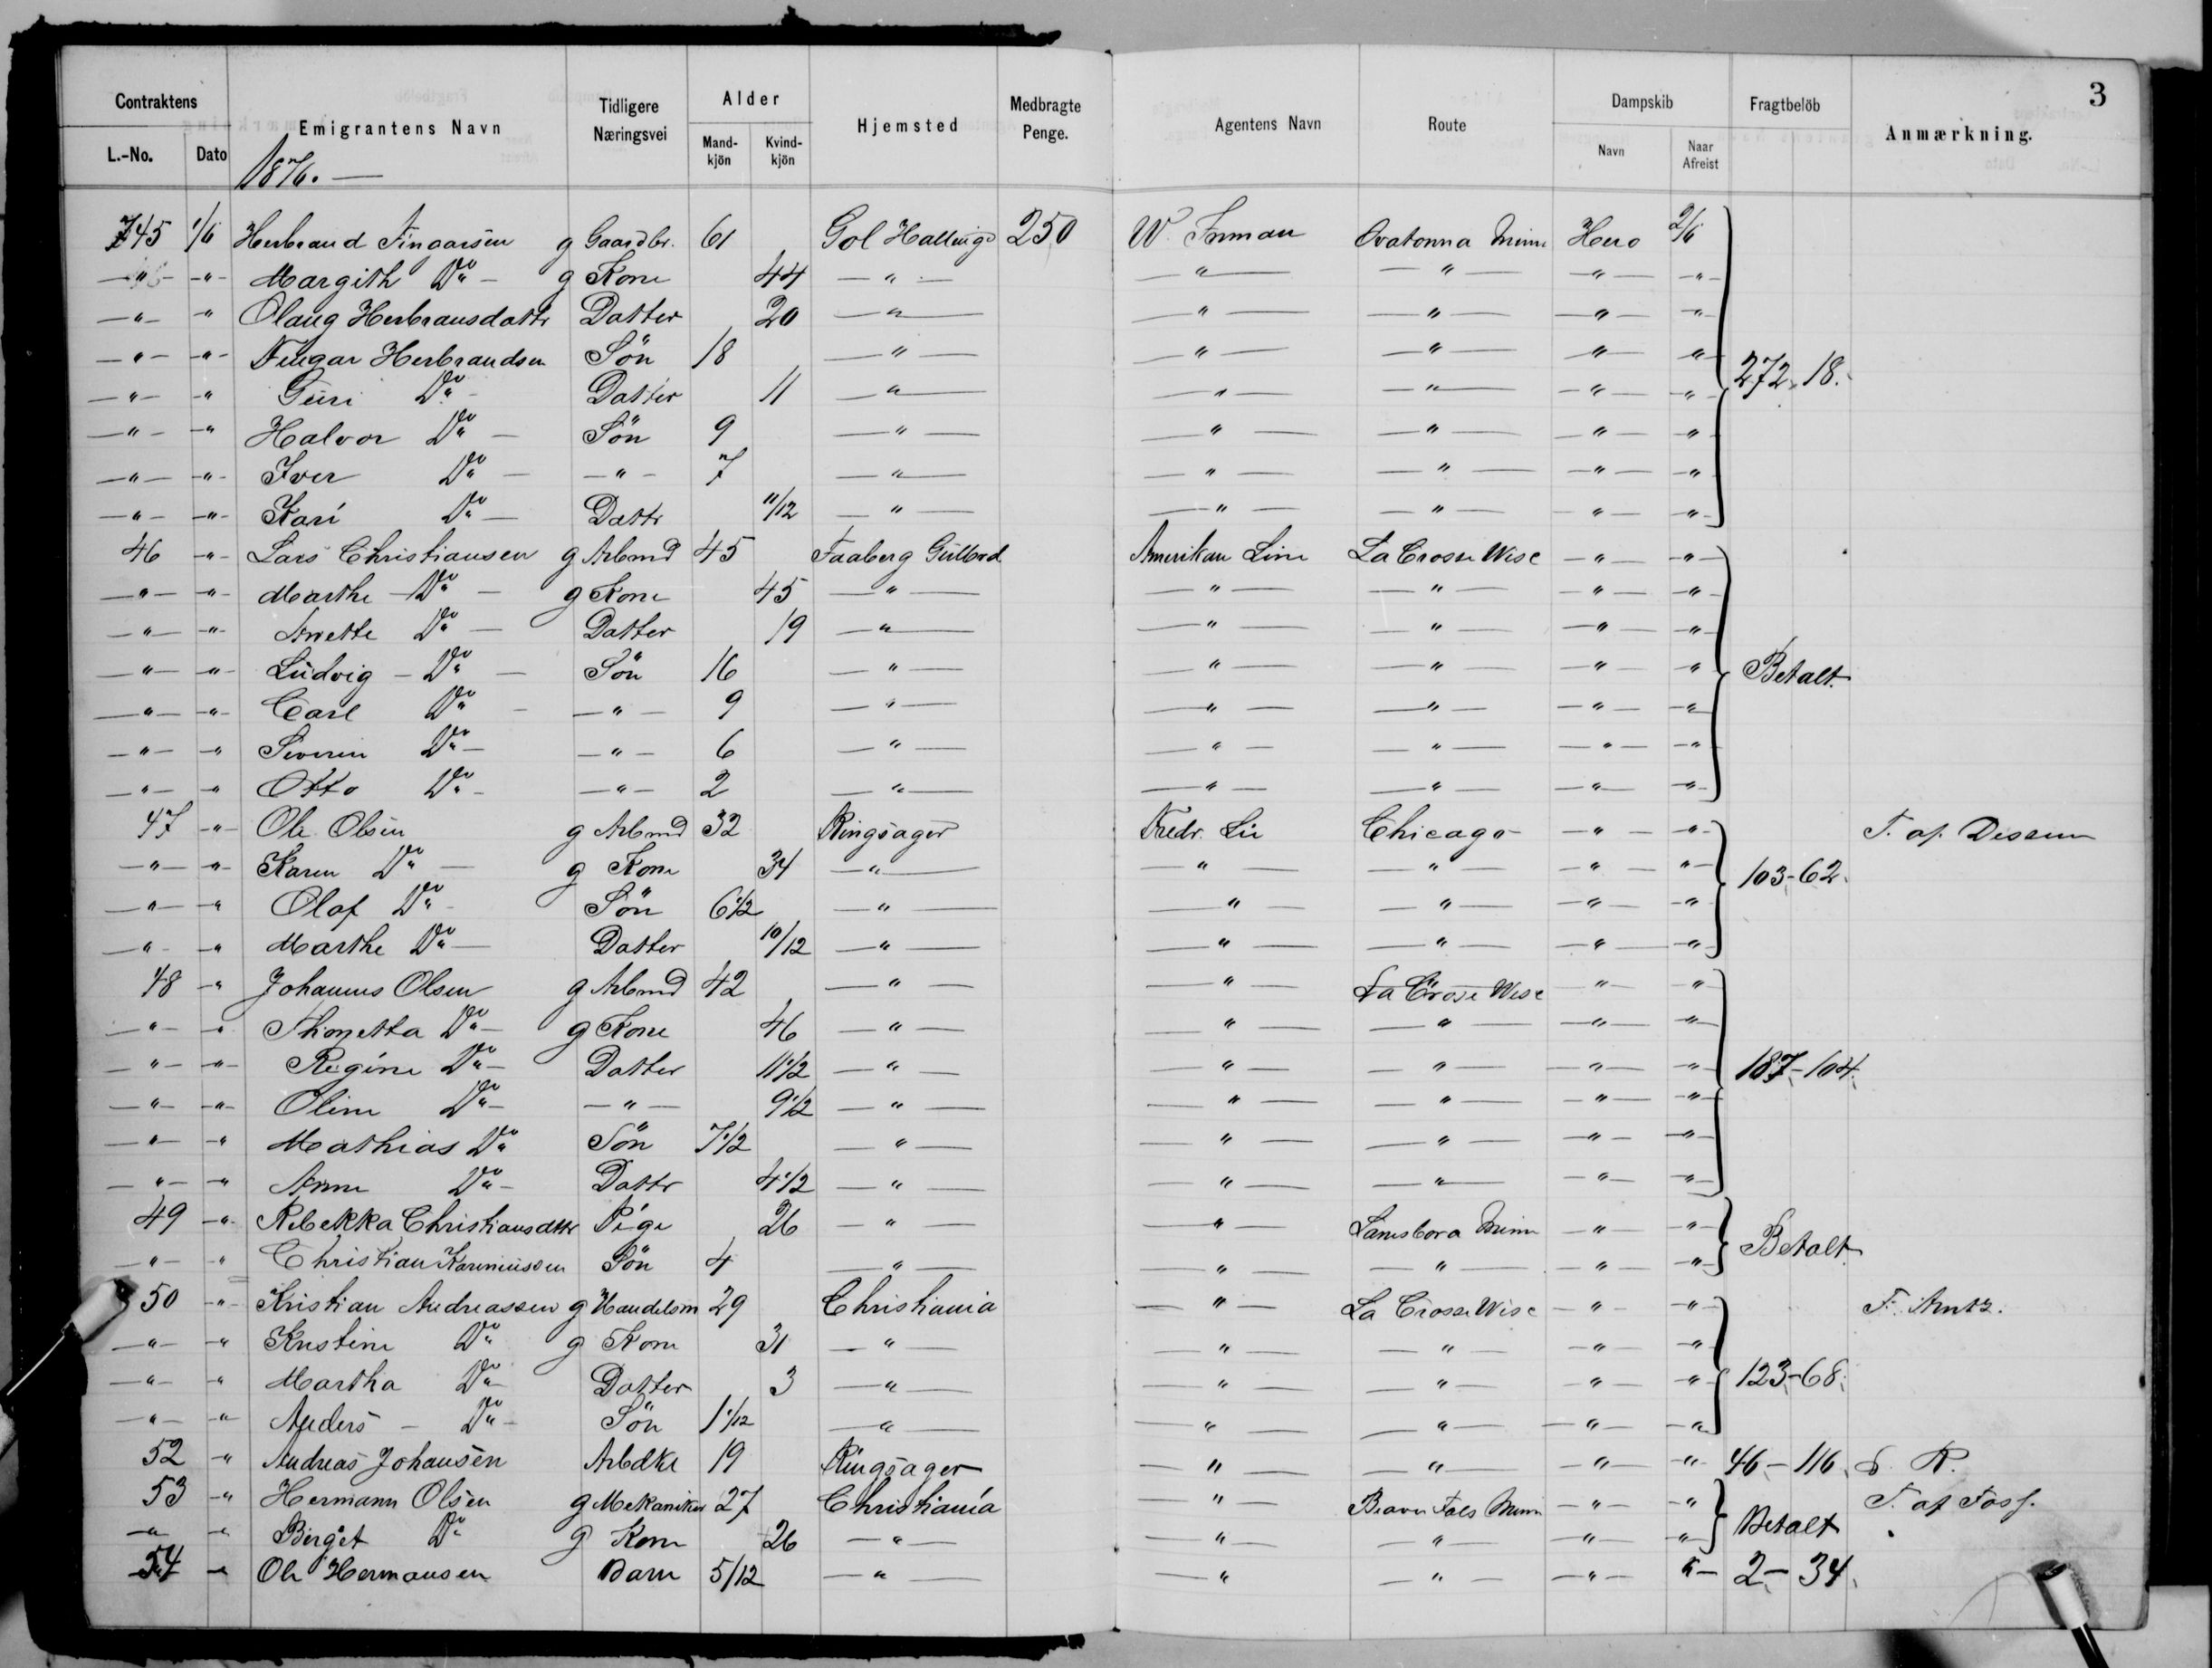 3
Contraktens | Emigrantens Navn | Tidligere Næringsvei | Alder | Hjemsted | Medbragte Penge. | Agentens Navn | Route | Dampskib | Fragtbelöb | Anmærkning.
L.-No. | Dato | Mand-kjön | Kvind-kjön | Navn | Naar Afreist
1876.
745 | 1/6 | Herbrand Fingarsen | g Gaardbr. | 61 | Gol Hallingd | 250 | W. Inman | Ovatonna Minn | Hero | 2/6
" | " | Margith Do | g Kone | 44 | " | " | " | " | "
" | " | Olaug Herbransdattr | Datter | 20 | " | " | " | " | "
" | " | Fingar Herbrandsen | Sön | 18 | " | " | " | " | " | 272. 18.
" | " | Guri Do | Datter | 11 | " | " | " | " | "
" | " | Halvor Do | Sön | 9 | " | " | " | " | "
" | " | Iver Do | " | 7 | " | " | " | " | "
" | " | Kari Do | Dattr | 11/12 | " | " | " | " | "
46 | " | Lars Christiansen | g Arbmd | 45 | Faaberg Gulbrd | Amerikan Line | La Crosse Wisc | " | "
" | " | Marthe Do | g Kone | 45 | " | " | " | " | "
" | " | Anette Do | Datter | 19 | " | " | " | " | "
" | " | Ludvig Do | Sön | 16 | " | " | " | " | " | Betalt
" | " | Carl Do | " | 9 | " | " | " | " | "
" | " | Severin Do | " | 6 | " | " | " | " | "
" | " | Otto Do | " | 2 | " | " | " | " | "
47 | " | Ole Olsen | g Arbmd | 32 | Ringsager | Fredr. Lie | Chicago | " | " | T. af
" | " | Karen Do | g Kone | 34 | " | " | " | " | " | 103-62.
" | " | Olaf Do | Sön | 6 1/2 | " | " | " | " | "
" | " | Marthe Do | Datter | 10/12 | " | " | " | " | "
48 | " | Johannes Olsen | g Arbmd | 42 | " | " | La Crosse Wisc | " | "
" | " | Thonetta Do | g Kone | 46 | " | " | " | " | "
" | " | Regine Do | Datter | 11 1/2 | " | " | " | " | " | 187-104.
" | " | Oline Do | " | 9 1/2 | " | " | " | " | "
" | " | Mathias Do | Sön | 7 1/2 | " | " | " | " | "
" | " | Anne Do | Dattr | 4 1/2 | " | " | " | " | "
49 | " | Rebekka Christiansdttr | Pige | 26 | " | " | Lanesbora Minn | " | " | Betalt
" | " | Christian Kareniussen | Sön | 4 | " | " | " | " | "
50 | " | Kristian Andreassen | g Handelsm | 29 | Christiania | " | La Crosse Wisc | " | " | F. Arntz.
" | " | Kristine Do | g Kone | 31 | " | " | " | " | "
" | " | Martha Do | Datter | 3 | " | " | " | " | " | 123-68.
" | " | Anders Do | Sön | 1 1/12 | " | " | " | " | "
52 | " | Andreas Johansen | Arbdkl | 19 | Ringsager | " | " | " | " | 46-116. | R.
53 | " | Hermann Olsen | g Mekaniker | 27 | Christiania | " | Beaver Fals Minn | " | " | T. af Foss.
" | " | Birget Do | g Kone | 26 | " | " | " | " | " | Betalt
54 | " | Ole Hermansen | Barn | 5/12 | " | " | " | " | " | 2-34.